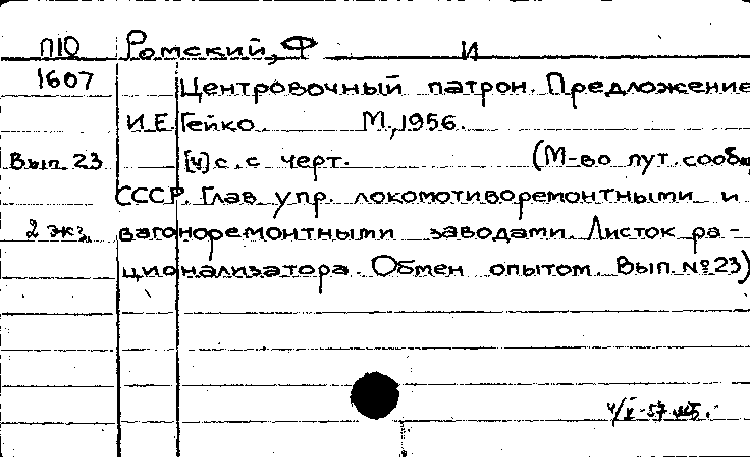 П10 Ромский, Ф И
1607 Центровочный патрон. Предложение
И.Е. Гейко. М., 1956.
Вып. 23 [4] с. с черт. (М-во пут. сообщ.
СССР. Глав. упр. локомотиворемонтными и
2 экз. вагоноремонтными заводами. Листок ра-
ционализатора. Обмен опытом. Вып. №23)
4/V-57